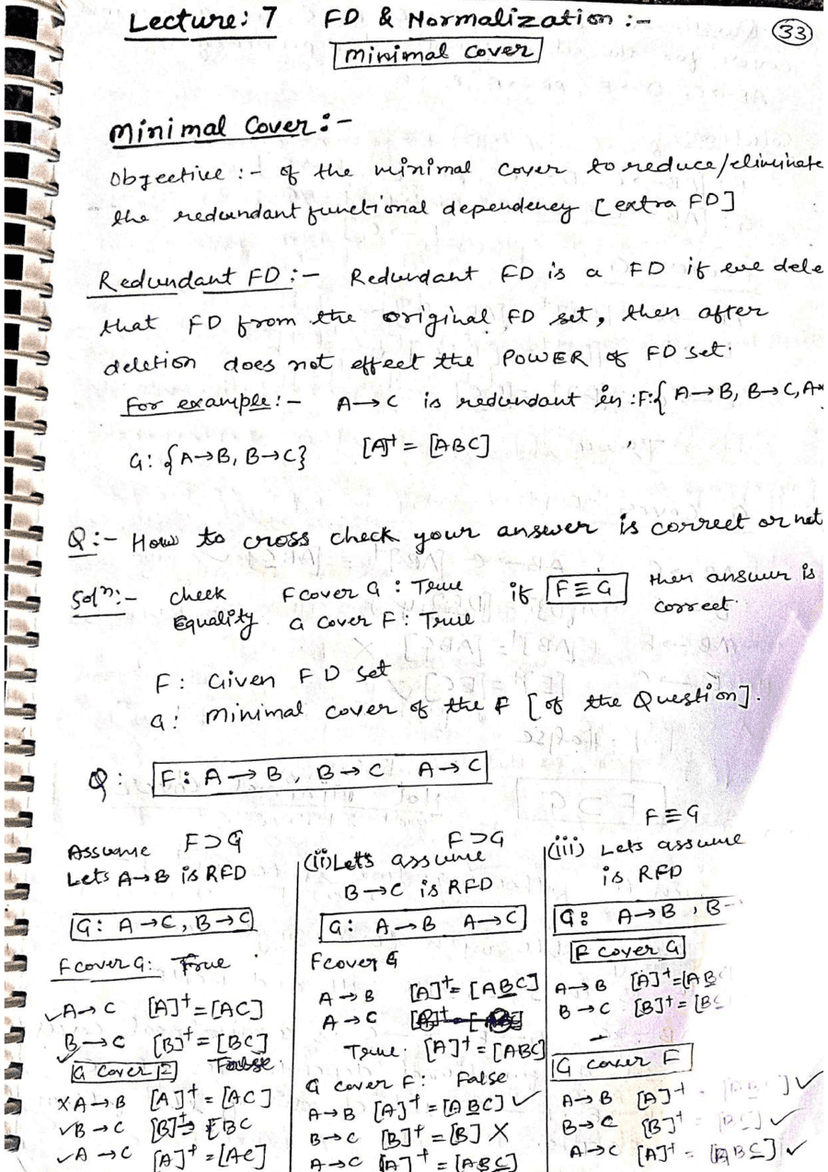 Lecture: 7 FD & Normalization :-
33
Minimal Cover
Minimal Cover :-
Objective :- of the minimal cover to reduce/eliminate
the redundant functional dependency [extra FD]
Redundant FD :- Redundant FD is a FD if we dele
that FD from the original FD set, then after
deletion does not effect the POWER of FD set.
For example :- A→C is redundant in :F:{ A→B, B→C, A
G: {A→B, B→C} [A]+ = [ABC]
Q:- How to cross check your answer is correct or not
Soln:- check F cover G : True if F≡G then answer is
Equality G cover F : True correct.
F: Given FD set
G: Minimal cover of the F [of the Question].
Q: F: A→B, B→C A→C
Assume F⊃G
Lets A→B is RFD
G: A→C, B→C
F cover G: True
✓A→C [A]+ = [AC]
B→C [B]+ = [BC]
✓
G cover False
XA→B [A]+ = [AC]
✓B→C [B]+ [BC
✓A→C [A]+ = [AC]
F⊃G
(ii) Lets assume
B→C is RFD
G: A→B A→C
F cover G
A→B [A]+ = [ABC]
A→C
True: [A]+ = [ABC]
G cover F: False
A→B [A]+ = [ABC] ✓
B→C [B]+ = [B] X
A→C [A]+ = [ABC]
F≡G
(iii) Lets assume
is RFD
G: A→B, B-
F cover G
A→B [A]+ = [AB
B→C [B]+ = [BC
G cover F
A→B [A]+ ] ✓
B→C [B]+ [BC] ✓
A→C [A]+ = [ABC] ✓